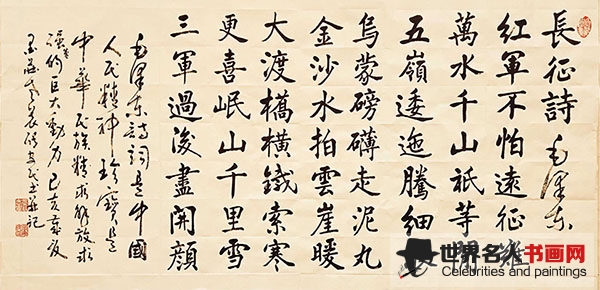 長征詩 毛澤東
紅軍不怕遠征難
萬水千山祇等閒
五嶺逶迤騰細浪
烏蒙磅礴走泥丸
金沙水拍雲崖暖
大渡橋橫鐵索寒
更喜岷山千里雪
三軍過後盡開顏
毛澤東詩詞是中國
人民精神珍寶是
中華民族精求解放求
强的巨大動力己亥
並記
世界名人书画网
Celebrities and paintings